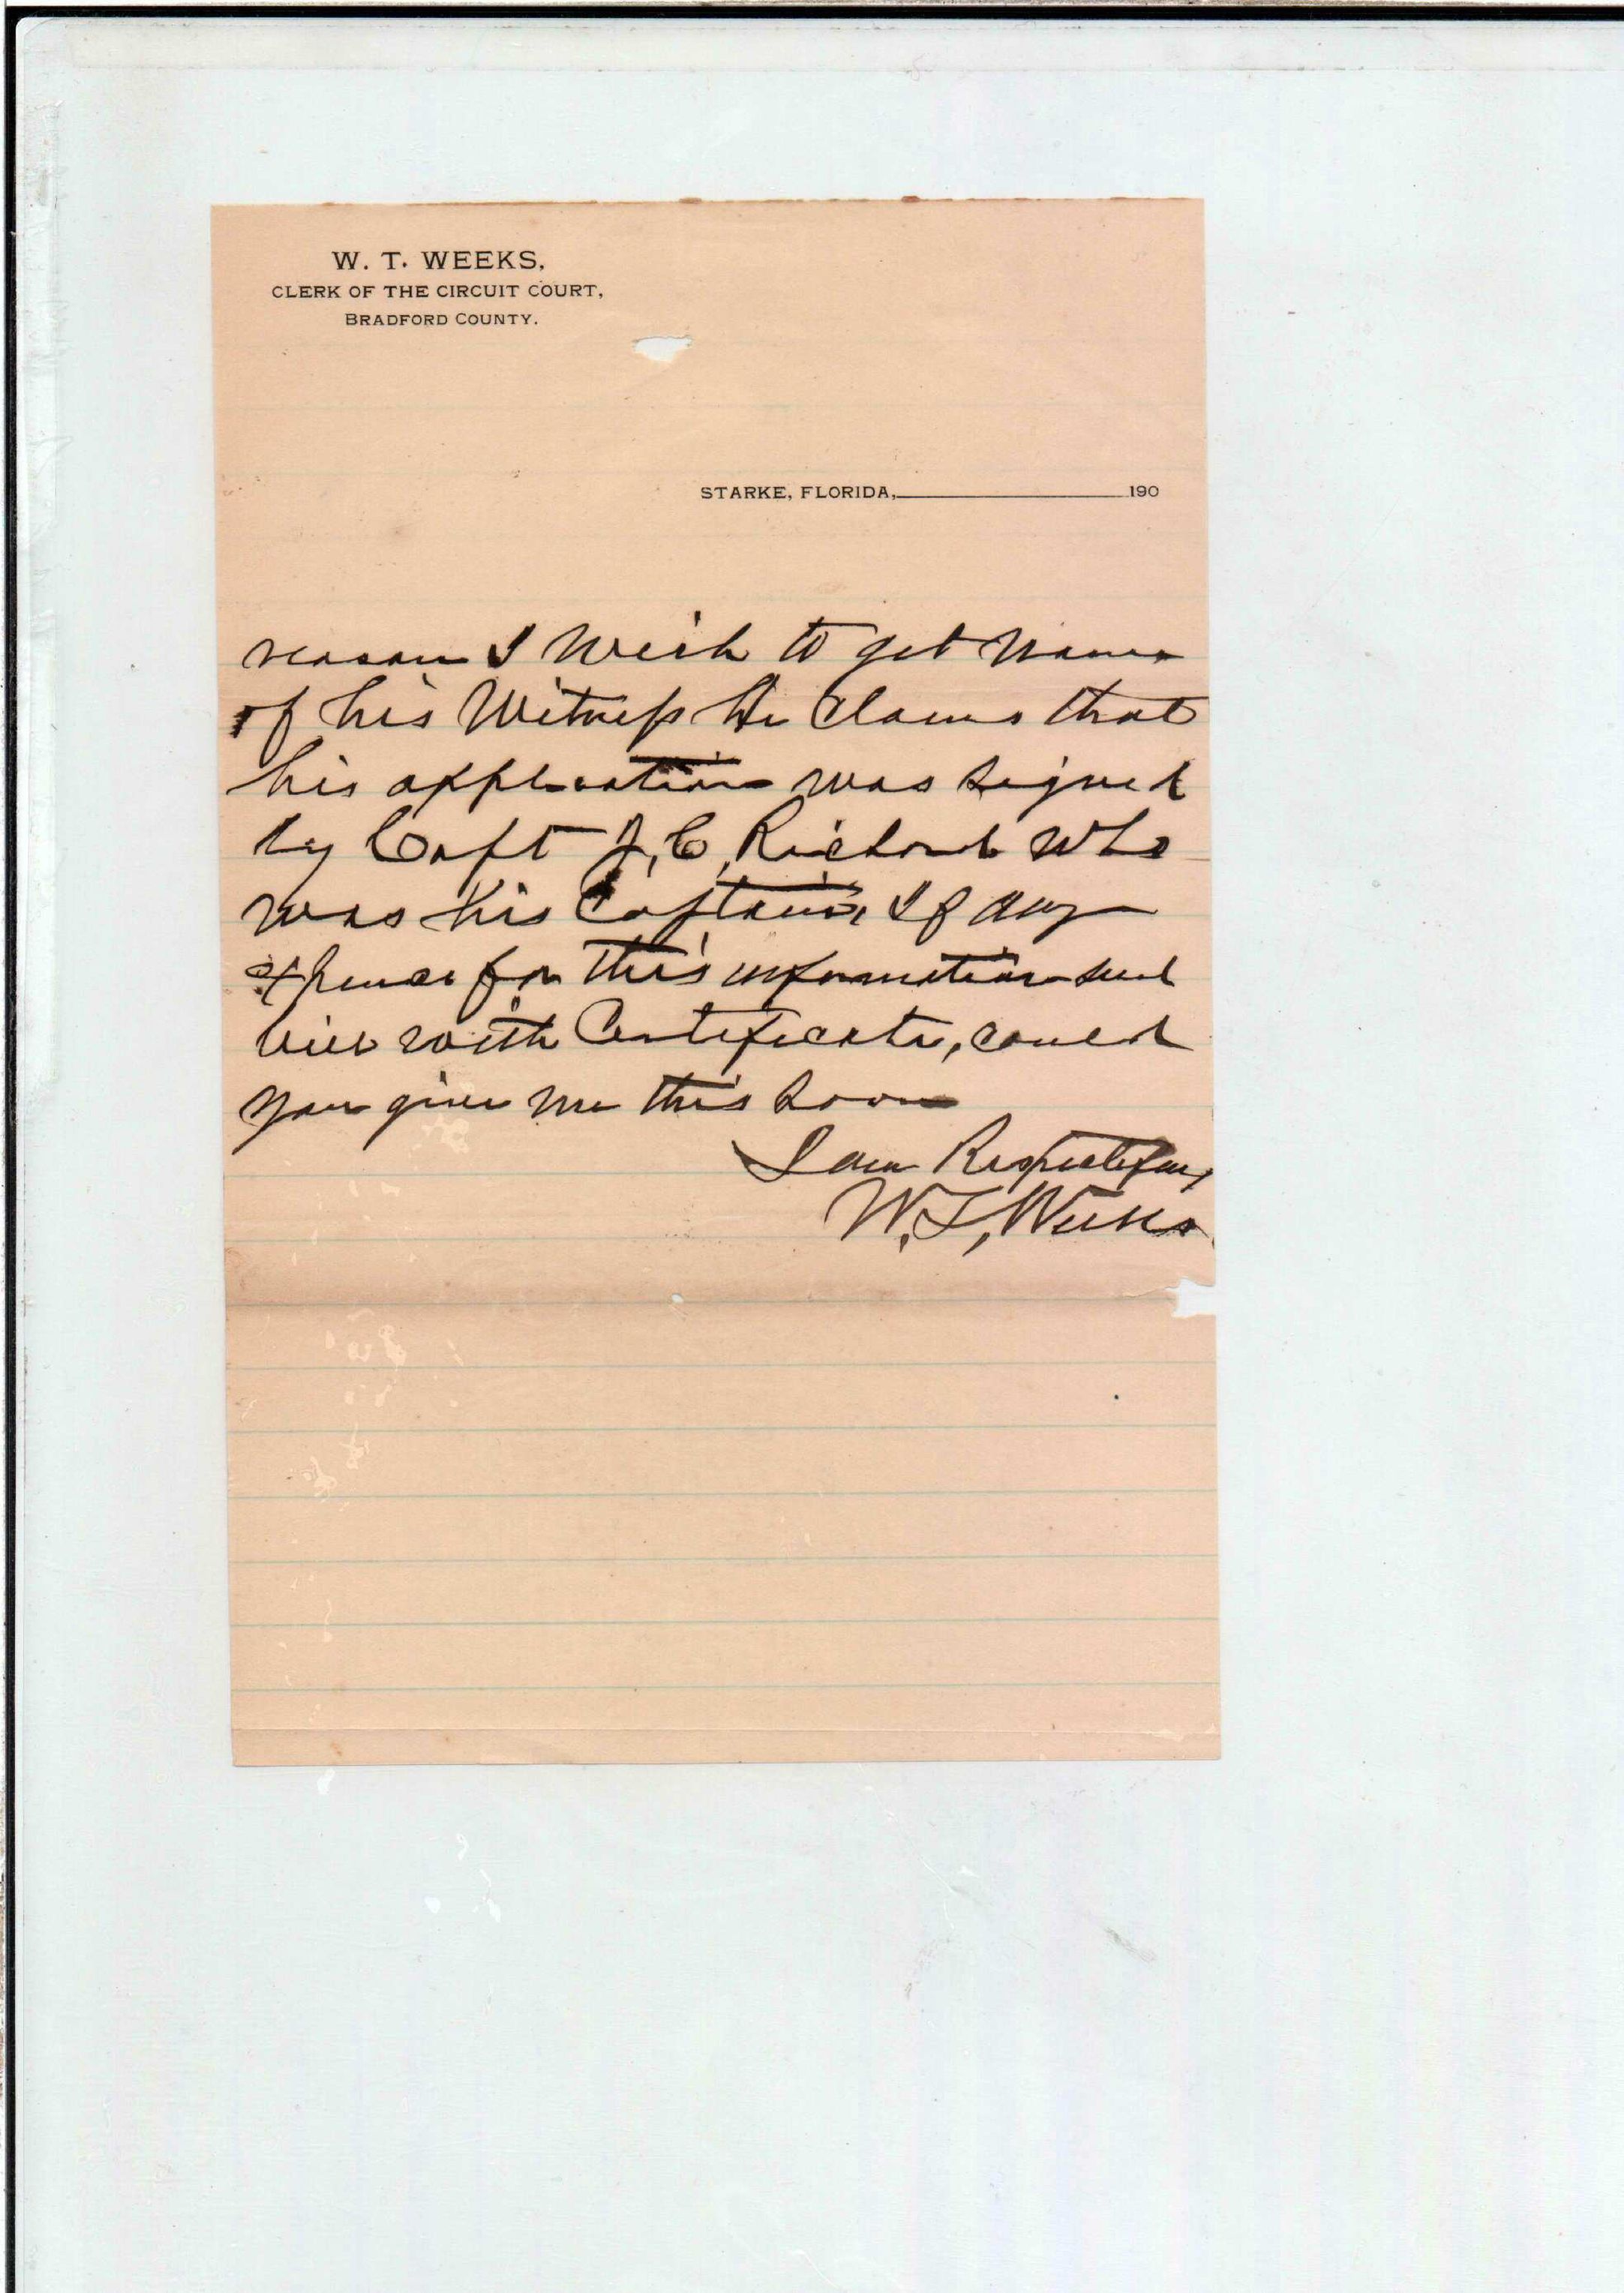 W. T. WEEKS,
CLERK OF THE CIRCUIT COURT,
BRADFORD COUNTY.
STARKE, FLORIDA, 190
reason I wish to get name
of his Witness He claims that
his application was signed
by Capt J. C. Richard who
was his Captain, If any
expence for this information send
bill with Certificate, could
you give me this soon
I am Respectfully
W. T. Weeks